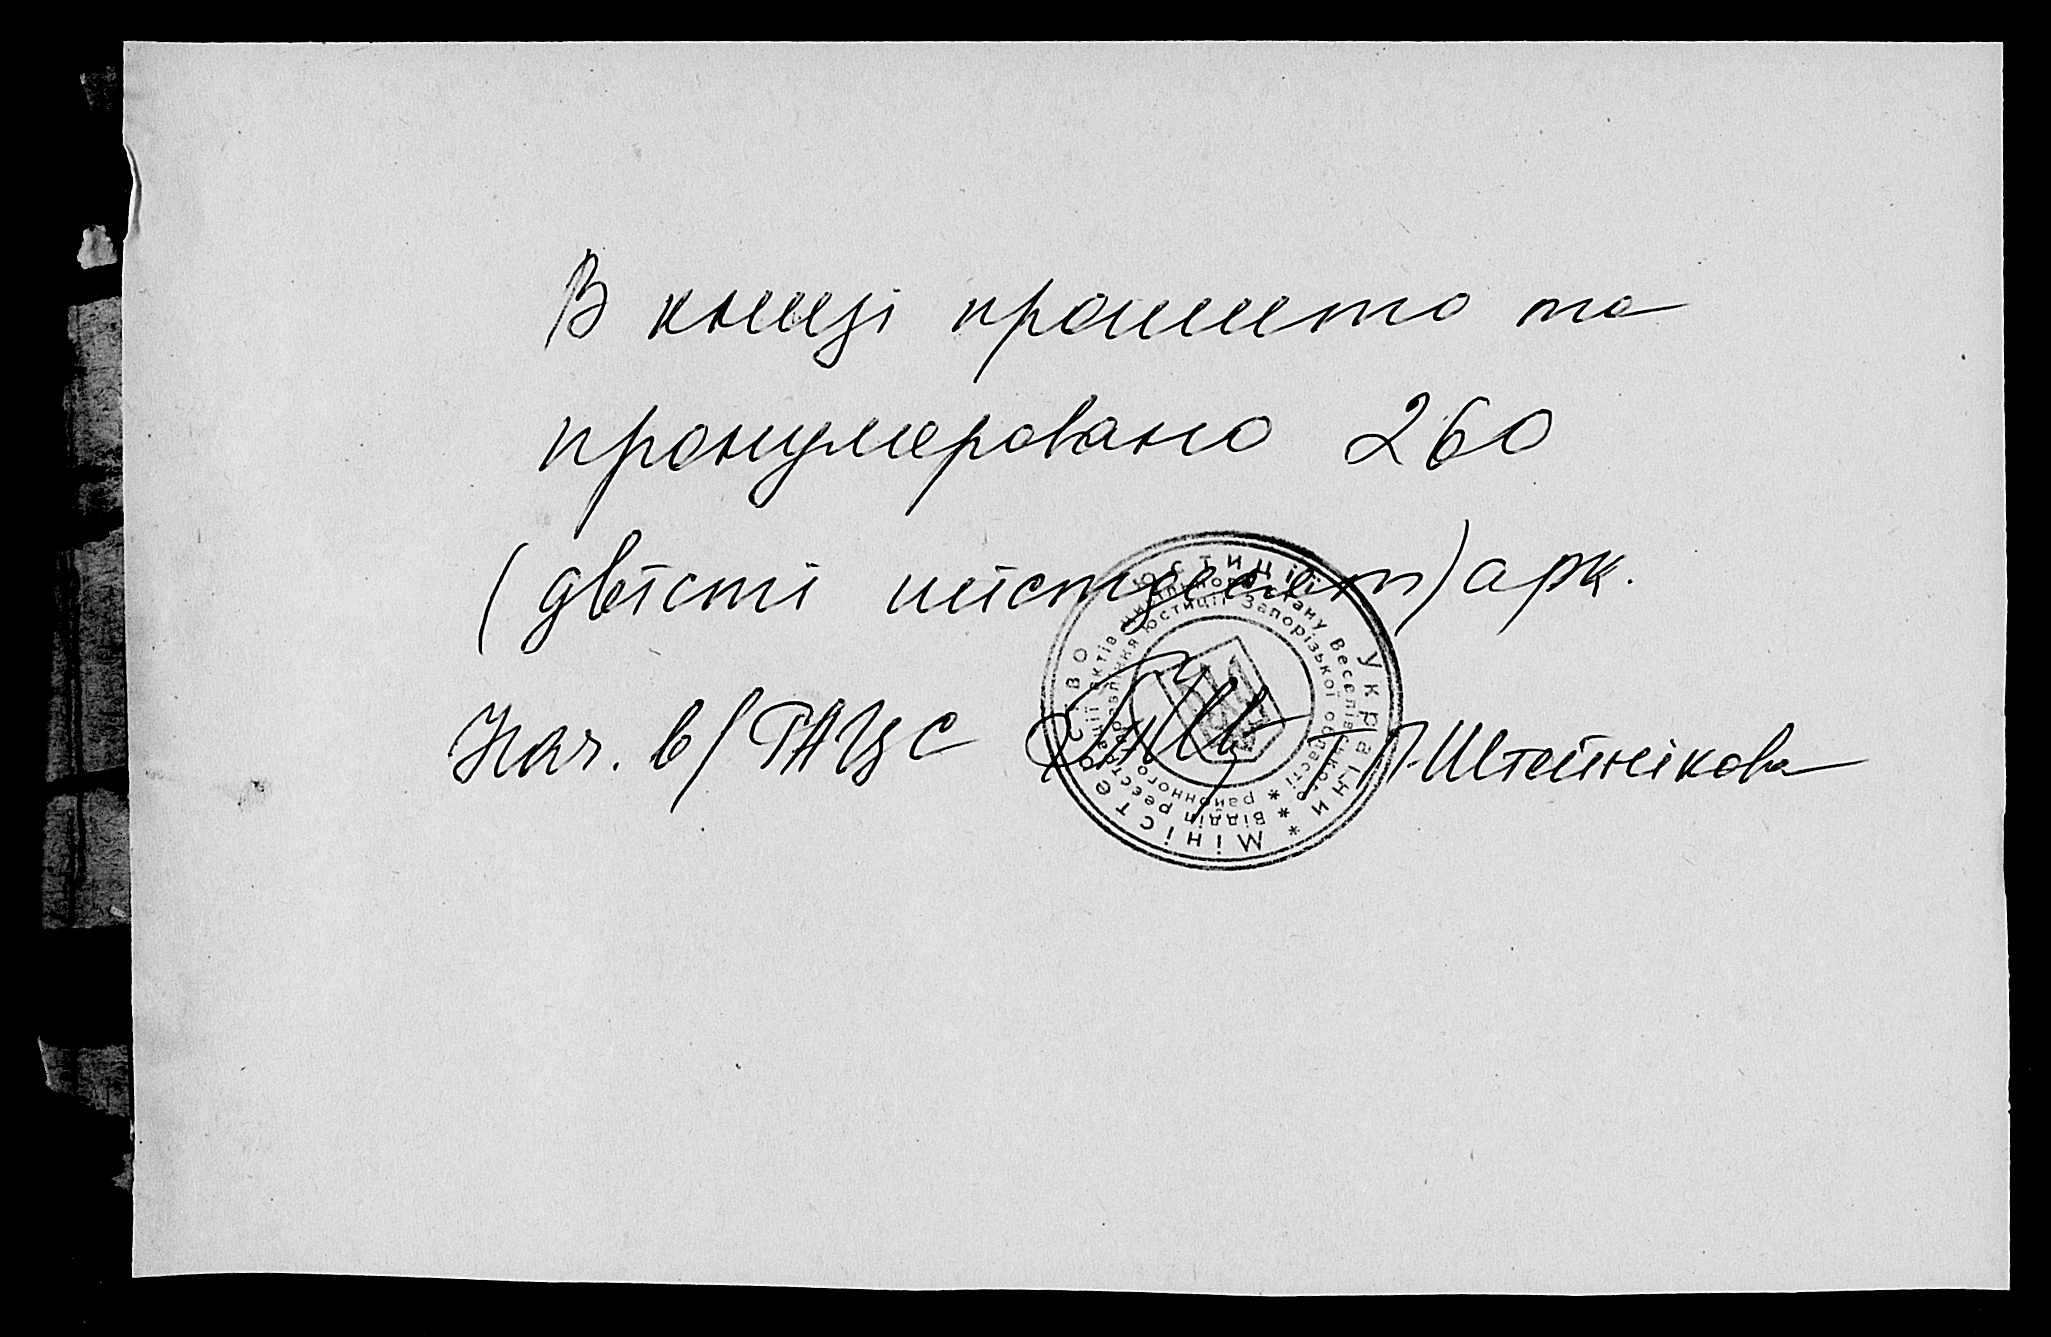 В книзі прошито та
пронумеровано 260
(двісті шістдесят) арк.
Нач. в/РАЦС Т.П. Штейнікова
Міністерство юстиції України *
Відділ реєстрації актів цивільного стану Веселівського *
районного управління юстиції Запорізької області *